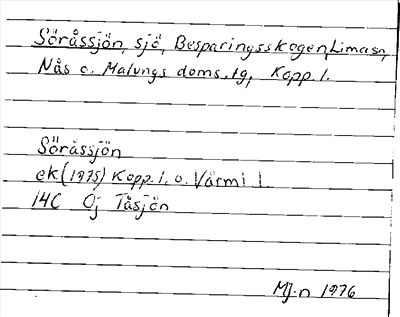 Söråssjön, sjö, Besparingsskogen, Lima sn,
Nås o. Malungs doms. tg, Kopp. l.
Söråssjön
ek (1975) Kopp. l. o. Värml l
14C 0j Tåsjön
MJ-n 1976